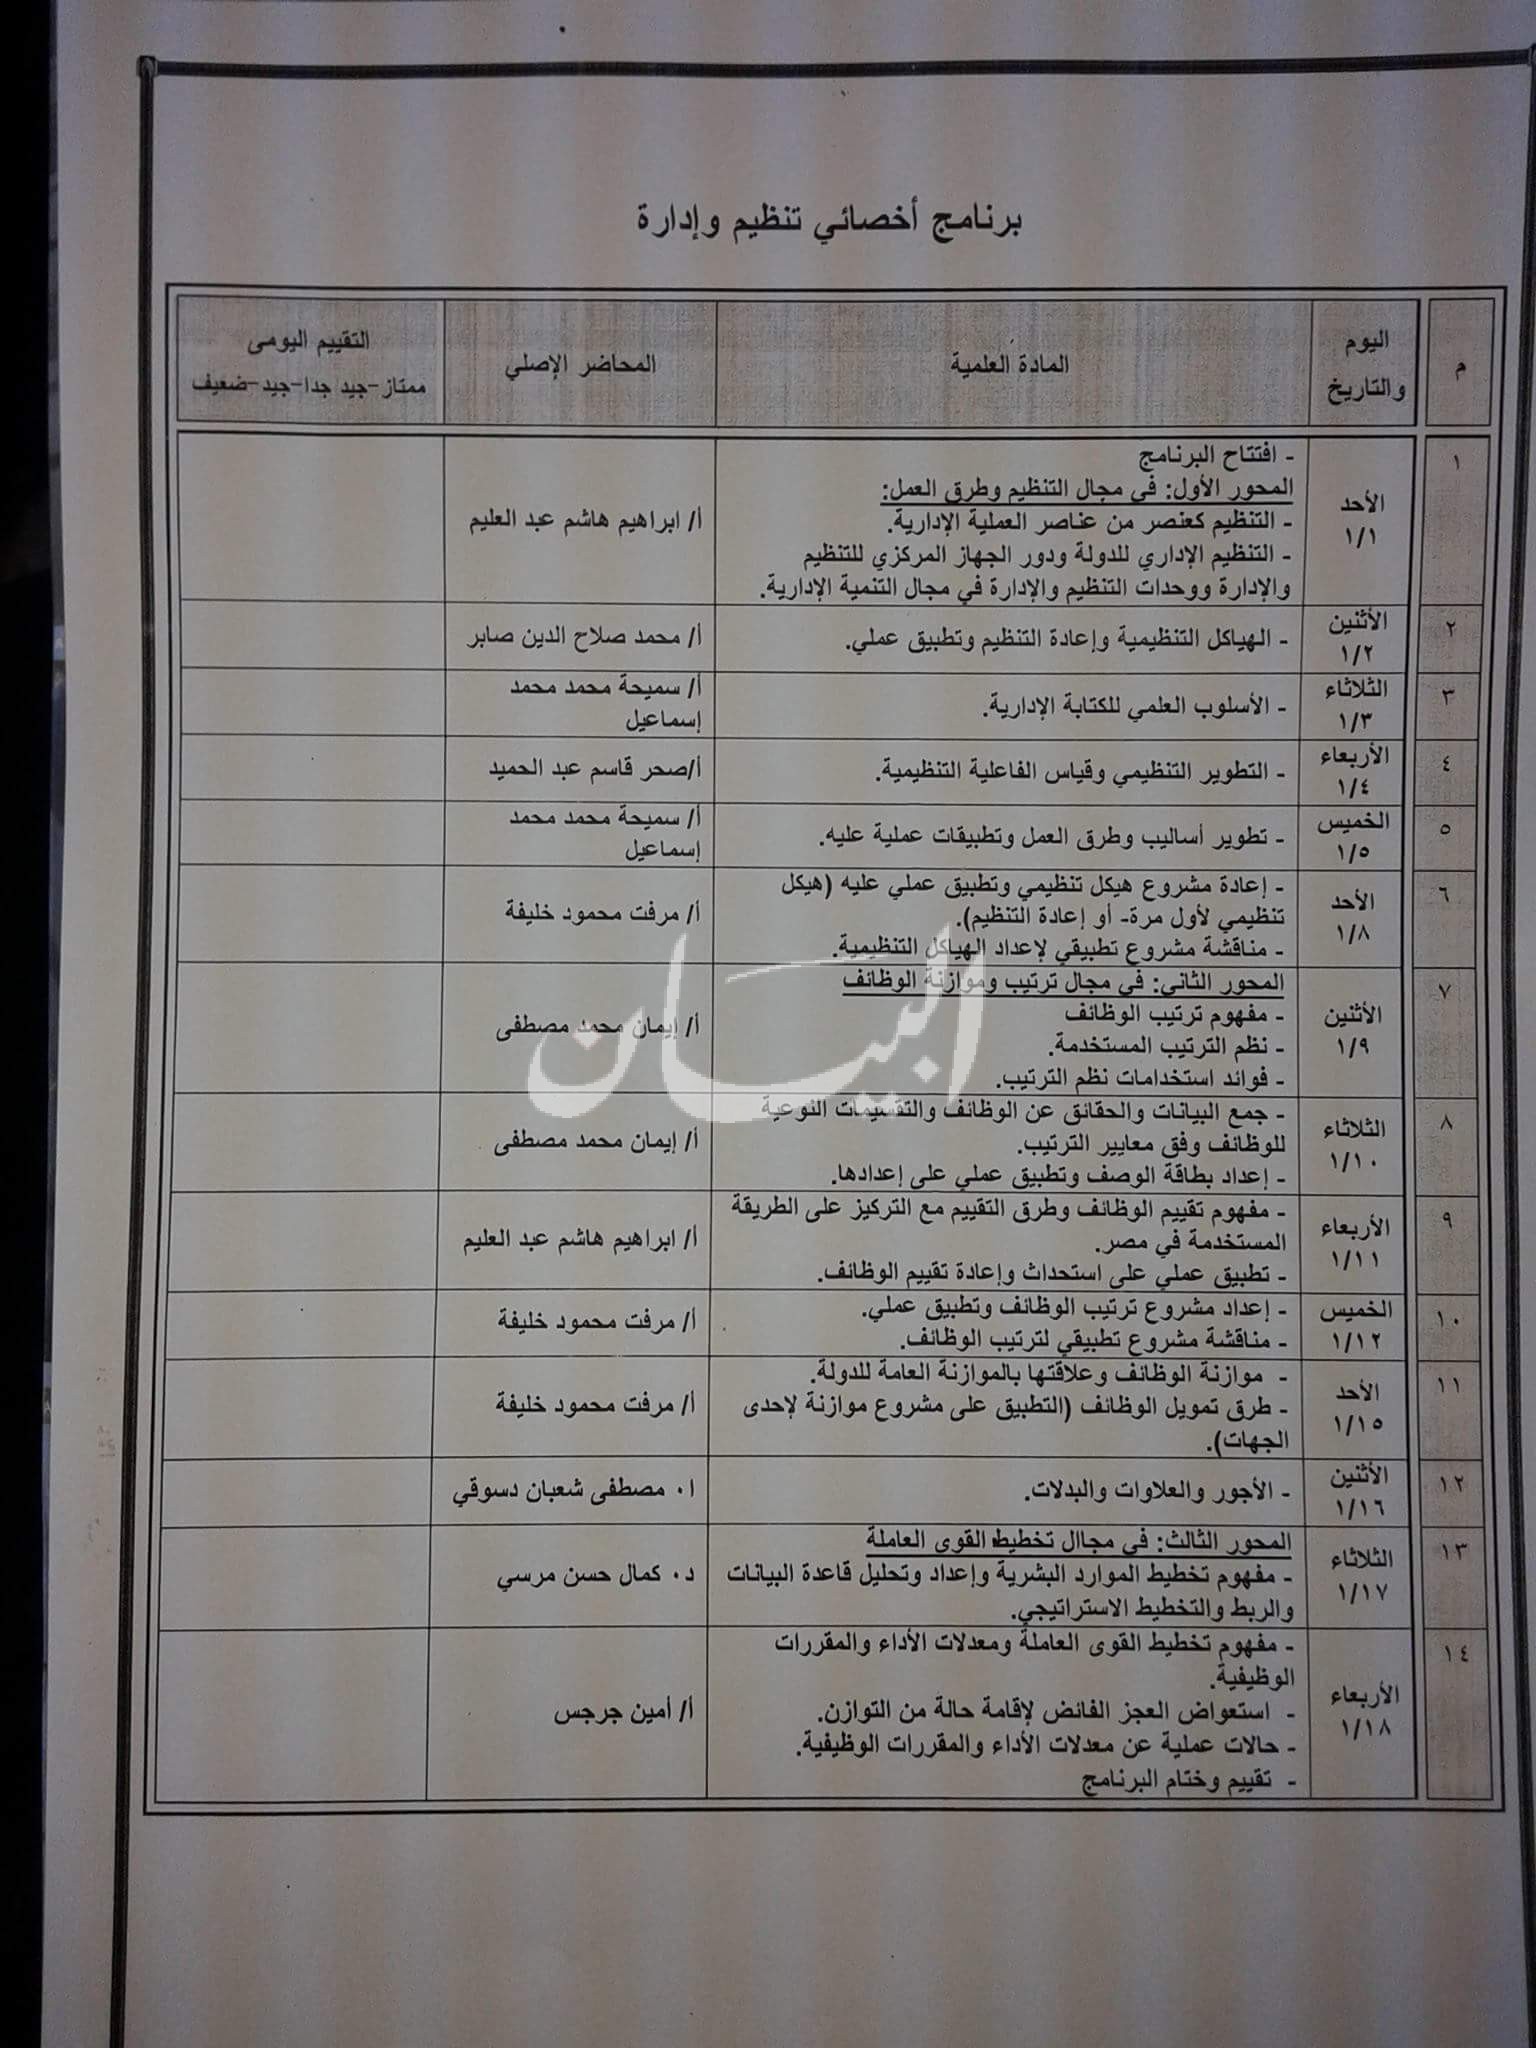 برنامج أخصائي تنظيم وإدارة
م
اليوم
والتاريخ
المادة العلمية
المحاضر الإصلي
التقييم اليومى
ممتاز-جيد جدا-جيد-ضعيف
١
الأحد
١/١
- افتتاح البرنامج
المحور الأول: في مجال التنظيم وطرق العمل:
- التنظيم كعنصر من عناصر العملية الإدارية.
- التنظيم الإداري للدولة ودور الجهاز المركزي للتنظيم
والإدارة ووحدات التنظيم والإدارة في مجال التنمية الإدارية.
أ/ ابراهيم هاشم عبد العليم
٢
الأثنين
١/٢
- الهياكل التنظيمية وإعادة التنظيم وتطبيق عملي.
أ/ محمد صلاح الدين صابر
٣
الثلاثاء
١/٣
- الأسلوب العلمي للكتابة الإدارية.
أ/ سميحة محمد محمد
إسماعيل
٤
الأربعاء
١/٤
- التطوير التنظيمي وقياس الفاعلية التنظيمية.
أ/صحر قاسم عبد الحميد
٥
الخميس
١/٥
- تطوير أساليب وطرق العمل وتطبيقات عملية عليه.
أ/ سميحة محمد محمد
إسماعيل
٦
الأحد
١/٨
- إعادة مشروع هيكل تنظيمي وتطبيق عملي عليه (هيكل
تنظيمي لأول مرة- أو إعادة التنظيم).
- مناقشة مشروع تطبيقي لإعداد الهياكل التنظيمية.
أ/ مرفت محمود خليفة
٧
الأثنين
١/٩
المحور الثاني: في مجال ترتيب وموازنة الوظائف
- مفهوم ترتيب الوظائف
- نظم الترتيب المستخدمة.
- فوائد استخدامات نظم الترتيب.
أ/ إيمان محمد مصطفى
البيان
٨
الثلاثاء
١/١٠
- جمع البيانات والحقائق عن الوظائف والتقسيمات النوعية
للوظائف وفق معايير الترتيب.
- إعداد بطاقة الوصف وتطبيق عملي على إعدادها.
أ/ إيمان محمد مصطفى
٩
الأربعاء
١/١١
- مفهوم تقييم الوظائف وطرق التقييم مع التركيز على الطريقة
المستخدمة في مصر.
- تطبيق عملي على استحداث وإعادة تقييم الوظائف.
أ/ ابراهيم هاشم عبد العليم
١٠
الخميس
١/١٢
- إعداد مشروع ترتيب الوظائف وتطبيق عملي.
- مناقشة مشروع تطبيقي لترتيب الوظائف.
أ/ مرفت محمود خليفة
١١
الأحد
١/١٥
- موازنة الوظائف وعلاقتها بالموازنة العامة للدولة.
- طرق تمويل الوظائف (التطبيق على مشروع موازنة لإحدى
الجهات).
أ/ مرفت محمود خليفة
١٢
الأثنين
١/١٦
- الأجور والعلاوات والبدلات.
ا٠ مصطفى شعبان دسوقي
١٣
الثلاثاء
١/١٧
المحور الثالث: في مجاال تخطيط القوى العاملة
- مفهوم تخطيط الموارد البشرية وإعداد وتحليل قاعدة البيانات
والربط والتخطيط الاستراتيجي.
د٠ كمال حسن مرسي
١٤
الأربعاء
١/١٨
- مفهوم تخطيط القوى العاملة ومعدلات الأداء والمقررات
الوظيفية.
- استعواض العجز الفائض لإقامة حالة من التوازن.
- حالات عملية عن معدلات الأداء والمقررات الوظيفية.
- تقييم وختام البرنامج
أ/ أمين جرجس